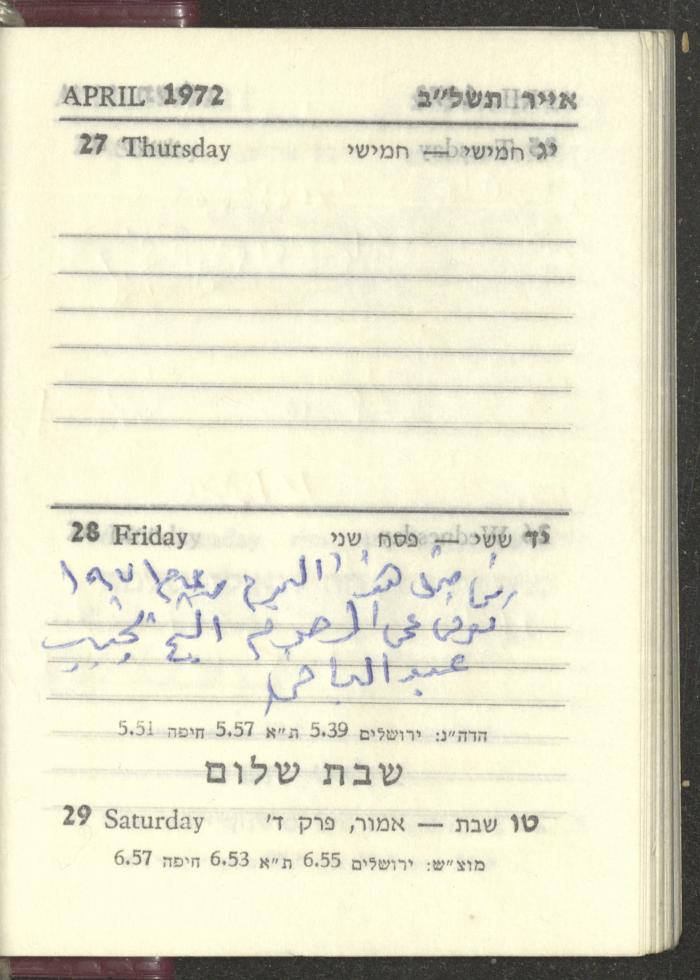 APRIL 1972 אייר תשל״ב
27 Thursday יג חמישי — חמישי
28 Friday יד ששי — פסח שני
في هذا اليوم
توفي المرحوم الشيخ نجيب
عبد
הדה״נ: ירושלים 5.39 ת״א 5.57 חיפה 5.51
שבת שלום
29 Saturday טו שבת — אמור, פרק ד׳
מוצ״ש: ירושלים 6.55 ת״א 6.53 חיפה 6.57